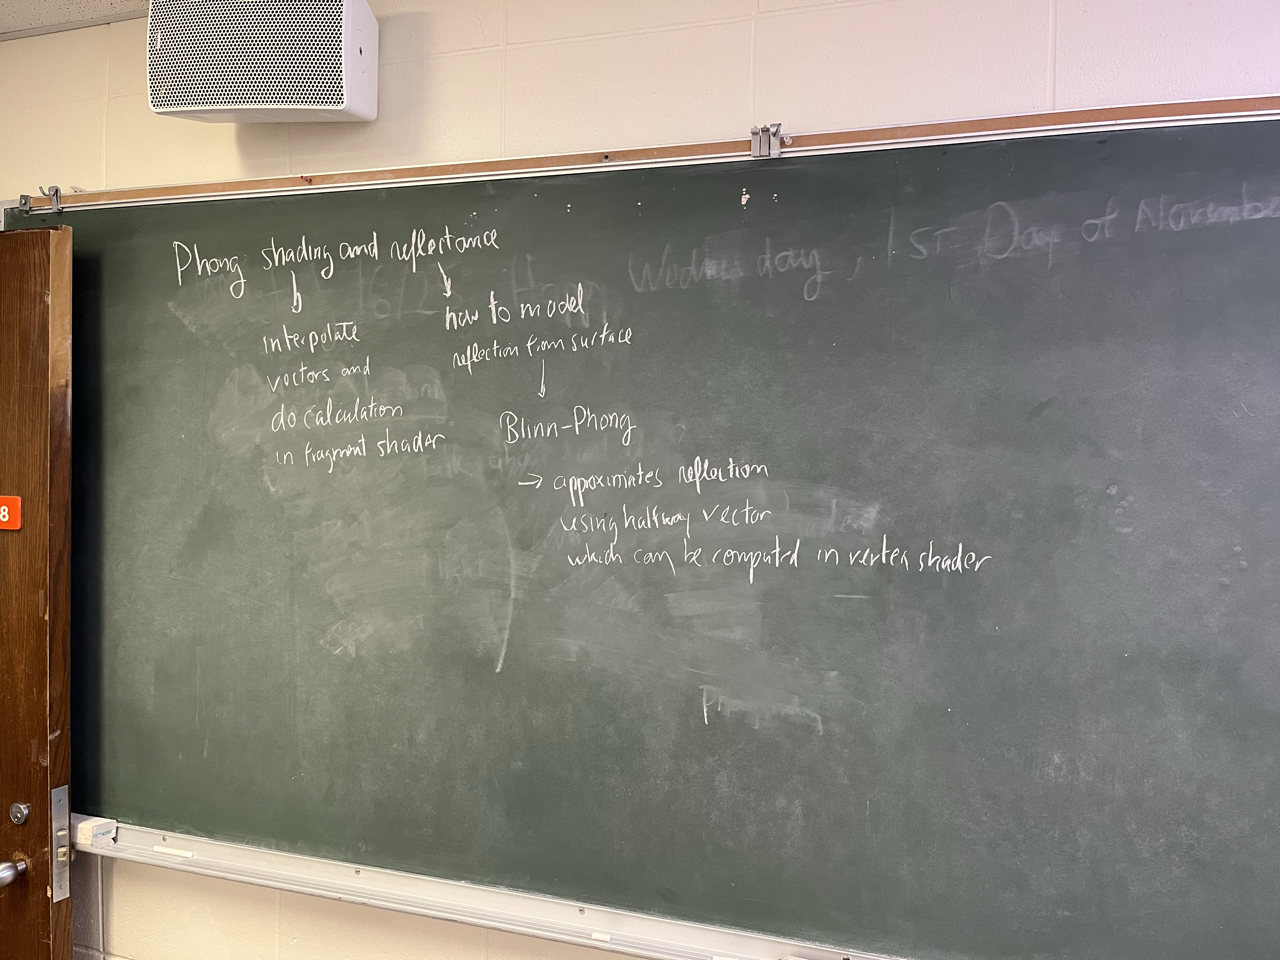 Phong shading and reflectance
interpolate
vectors and
do calculation
in fragment shader
how to model
reflection from surface
Blinn-Phong
→ approximates reflection
using halfway vector
which can be computed in vertex shader
Wednesday, 1st Day of Novembe
8